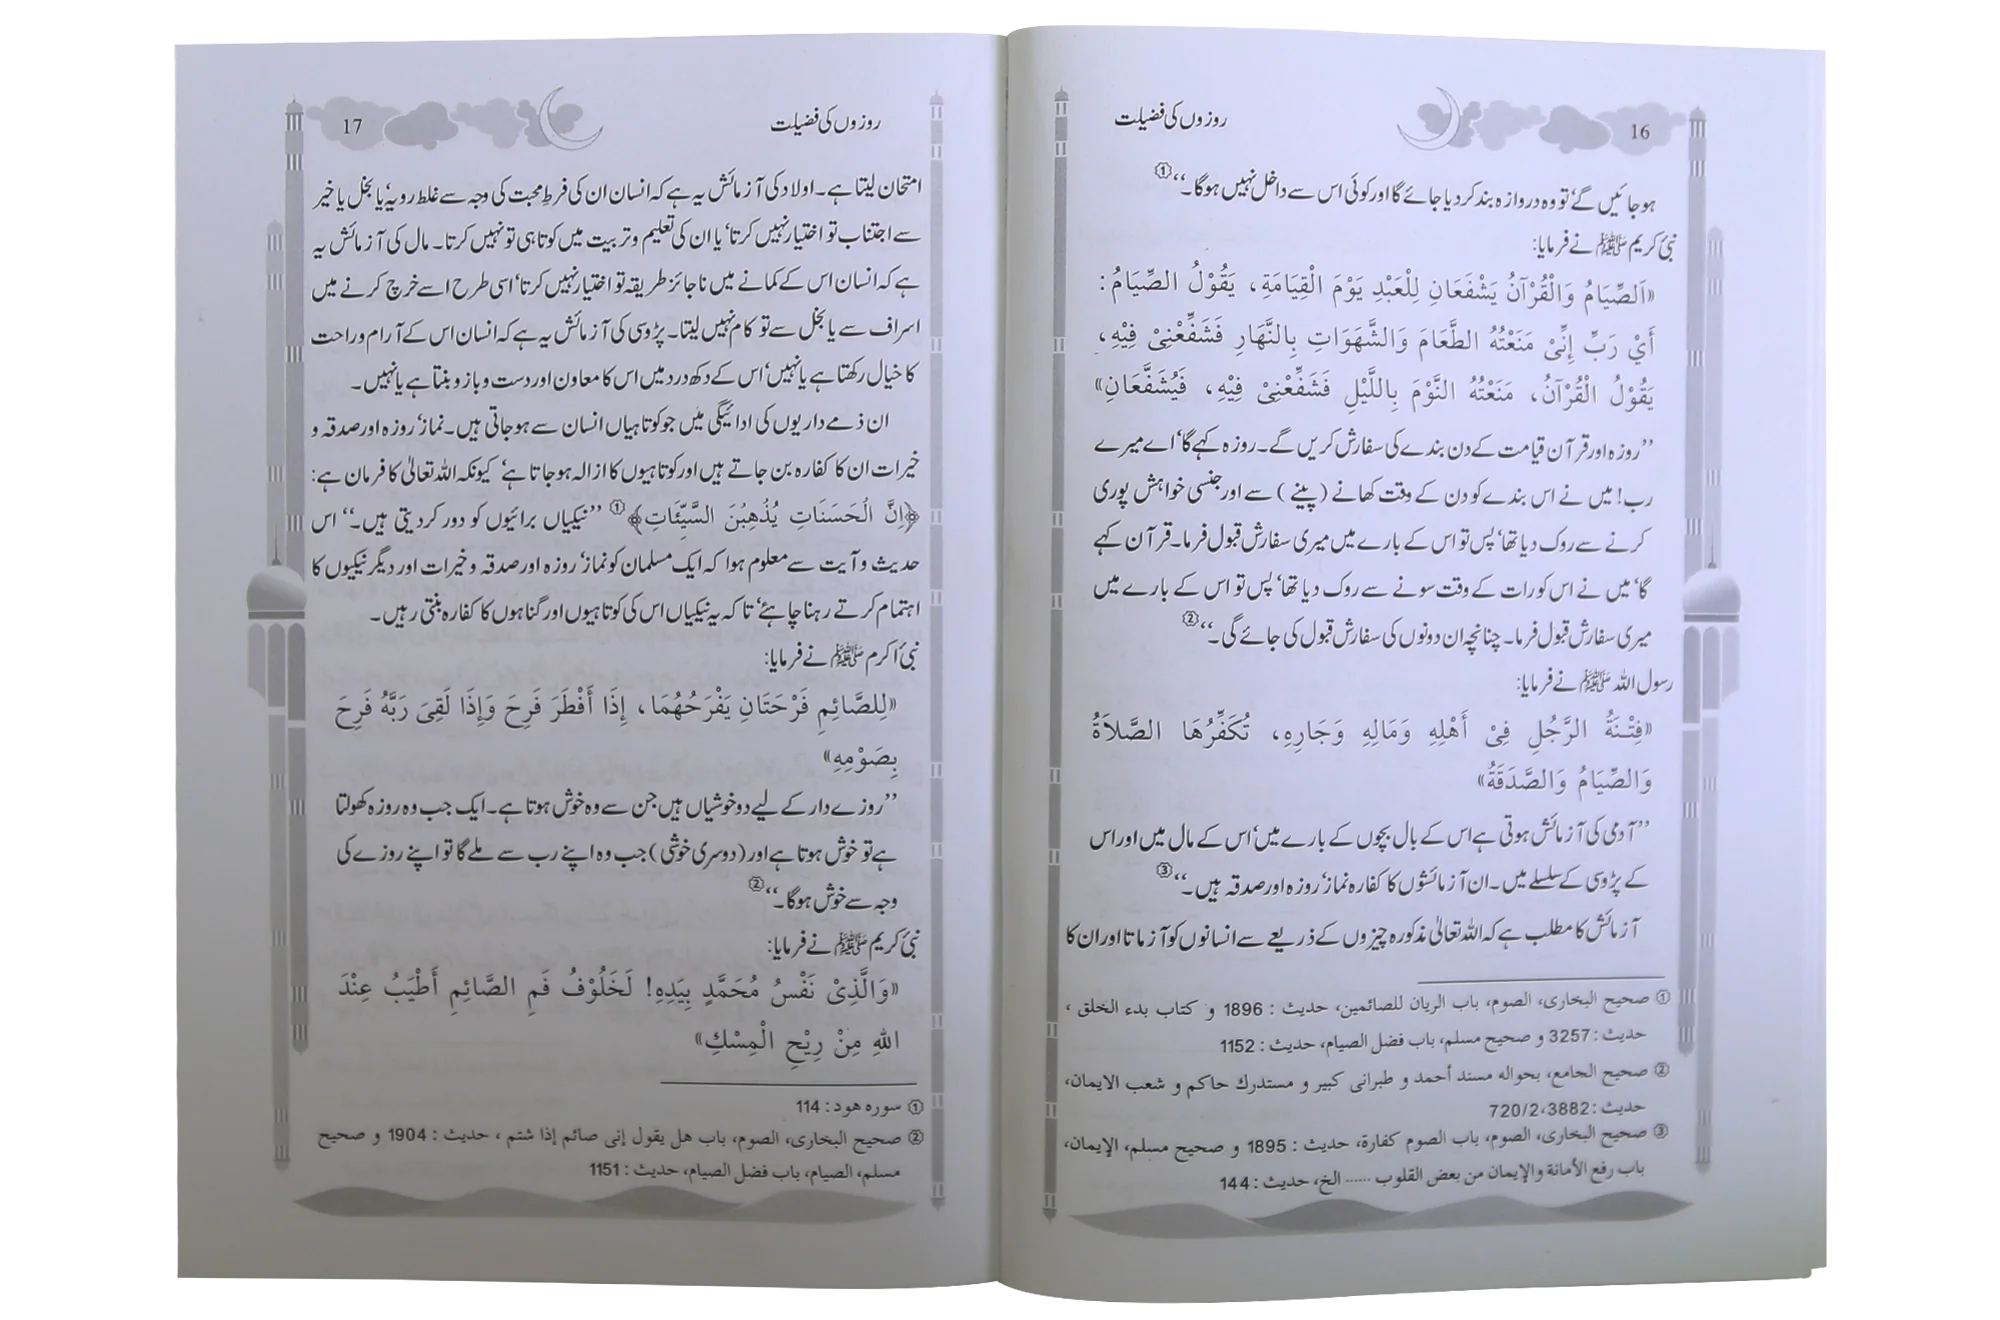 روزوں کی فضیلت
16
ہوجائیں گے‘ تو وہ دروازہ بند کردیا جائے گا اور کوئی اس سے داخل نہیں ہوگا۔‘‘①
نبیٔ کریم ﷺ نے فرمایا:
«اَلصِّيَامُ وَالْقُرْآنُ يَشْفَعَانِ لِلْعَبْدِ يَوْمَ الْقِيَامَةِ، يَقُوْلُ الصِّيَامُ:
أَيْ رَبِّ إِنِّیْ مَنَعْتُهُ الطَّعَامَ وَالشَّهَوَاتِ بِالنَّهَارِ فَشَفِّعْنِیْ فِيْهِ،
يَقُوْلُ الْقُرْآنُ، مَنَعْتُهُ النَّوْمَ بِاللَّيْلِ فَشَفِّعْنِیْ فِيْهِ، فَيُشَفَّعَانِ»
’’روزہ اور قرآن قیامت کے دن بندے کی سفارش کریں گے۔ روزہ کہے گا‘ اے میرے
رب! میں نے اس بندے کو دن کے وقت کھانے (پینے) سے اور جنسی خواہش پوری
کرنے سے روک دیا تھا‘ پس تو اس کے بارے میں میری سفارش قبول فرما۔ قرآن کہے
گا‘ میں نے اس کو رات کے وقت سونے سے روک دیا تھا‘ پس تو اس کے بارے میں
میری سفارش قبول فرما۔ چنانچہ ان دونوں کی سفارش قبول کی جائے گی۔‘‘②
رسول اللہ ﷺ نے فرمایا:
«فِتْنَةُ الرَّجُلِ فِیْ أَهْلِهِ وَمَالِهِ وَجَارِهِ، تُكَفِّرُهَا الصَّلاَةُ
وَالصِّيَامُ وَالصَّدَقَةُ»
’’آدمی کی آزمائش ہوتی ہے اس کے بال بچوں کے بارے میں‘ اس کے مال میں اور اس
کے پڑوسی کے سلسلے میں۔ ان آزمائشوں کا کفارہ نماز‘ روزہ اور صدقہ ہیں۔‘‘③
آزمائش کا مطلب ہے کہ اللہ تعالیٰ مذکورہ چیزوں کے ذریعے سے انسانوں کو آزماتا اور ان کا
① صحیح البخاری، الصوم، باب الریان للصائمین، حدیث: 1896 و کتاب بدء الخلق،
حدیث: 3257 و صحیح مسلم، باب فضل الصیام، حدیث: 1152
② صحیح الجامع، بحواله مسند أحمد و طبرانی کبیر و مستدرك حاکم و شعب الایمان،
حدیث: 3882، 720/2
③ صحیح البخاری، الصوم، باب الصوم کفارة، حدیث: 1895 و صحیح مسلم، الإیمان،
باب رفع الأمانة والإیمان من بعض القلوب ...... الخ، حدیث: 144
روزوں کی فضیلت
17
امتحان لیتا ہے۔ اولاد کی آزمائش یہ ہے کہ انسان ان کی فرطِ محبت کی وجہ سے غلط رویہ‘ یا بخل یا خیر
سے اجتناب تو اختیار نہیں کرتا‘ یا ان کی تعلیم و تربیت میں کوتاہی تو نہیں کرتا۔ مال کی آزمائش یہ
ہے کہ انسان اس کے کمانے میں ناجائز طریقہ تو اختیار نہیں کرتا‘ اسی طرح اسے خرچ کرنے میں
اسراف سے یا بخل سے تو کام نہیں لیتا۔ پڑوسی کی آزمائش یہ ہے کہ انسان اس کے آرام و راحت
کا خیال رکھتا ہے یا نہیں‘ اس کے دکھ درد میں اس کا معاون اور دست و بازو بنتا ہے یا نہیں۔
ان ذمے داریوں کی ادائیگی میں جو کوتاہیاں انسان سے ہوجاتی ہیں۔ نماز‘ روزہ اور صدقہ و
خیرات ان کا کفارہ بن جاتے ہیں اور کوتاہیوں کا ازالہ ہوجاتا ہے‘ کیونکہ اللہ تعالیٰ کا فرمان ہے:
﴿اِنَّ الْحَسَنَاتِ يُذْهِبْنَ السَّيِّئَاتِ﴾① ’’نیکیاں برائیوں کو دور کردیتی ہیں۔‘‘ اس
حدیث و آیت سے معلوم ہوا کہ ایک مسلمان کو نماز‘ روزہ اور صدقہ و خیرات اور دیگر نیکیوں کا
اہتمام کرتے رہنا چاہئے‘ تاکہ یہ نیکیاں اس کی کوتاہیوں اور گناہوں کا کفارہ بنتی رہیں۔
نبیٔ اکرم ﷺ نے فرمایا:
«لِلصَّائِمِ فَرْحَتَانِ يَفْرَحُهُمَا، إِذَا أَفْطَرَ فَرِحَ وَإِذَا لَقِیَ رَبَّهُ فَرِحَ
بِصَوْمِهِ»
’’روزے دار کے لیے دو خوشیاں ہیں جن سے وہ خوش ہوتا ہے۔ ایک جب وہ روزہ کھولتا
ہے تو خوش ہوتا ہے اور (دوسری خوشی) جب وہ اپنے رب سے ملے گا تو اپنے روزے کی
وجہ سے خوش ہوگا۔‘‘②
نبیٔ کریم ﷺ نے فرمایا:
«وَالَّذِیْ نَفْسُ مُحَمَّدٍ بِيَدِهِ! لَخَلُوْفُ فَمِ الصَّائِمِ أَطْيَبُ عِنْدَ
اللهِ مِنْ رِيْحِ الْمِسْكِ»
① سوره هود: 114
② صحیح البخاری، الصوم، باب هل یقول إنی صائم إذا شتم، حدیث: 1904 و صحیح
مسلم، الصیام، باب فضل الصیام، حدیث: 1151